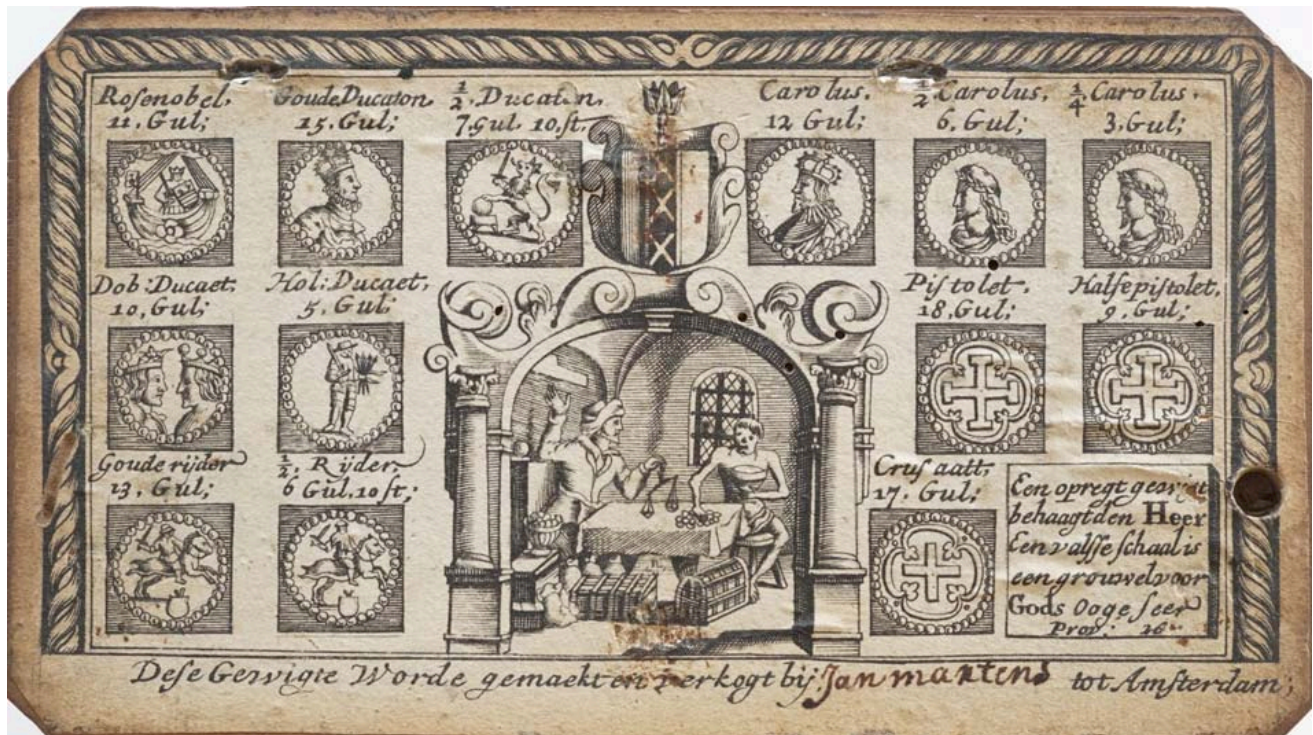 Rosenobel,
11. Gul;
Goude Ducaton
15. Gul;
1/2. Ducaton,
7. Gul. 10. st.
Carolus.
12 Gul;
1/2 Carolus.
6. Gul;
1/4 Carolus.
3. Gul;
Dob: Ducaet.
10. Gul;
Hol: Ducaet,
5. Gul
Pistolet.
18. Gul;
Halfe pistolet,
9. Gul;
Goude rijder
13. Gul;
1/2. Rijder,
6 Gul. 10 st;
Crusaatt,
17. Gul;
Een opregt gewigt
behaagt den Heer
Een valsse schaal is
een grouwel voor
Gods Ooge seer
Prov:
Dese Gewigte Worde gemaekt en verkogt bij Jan martens tot Amsterdam;